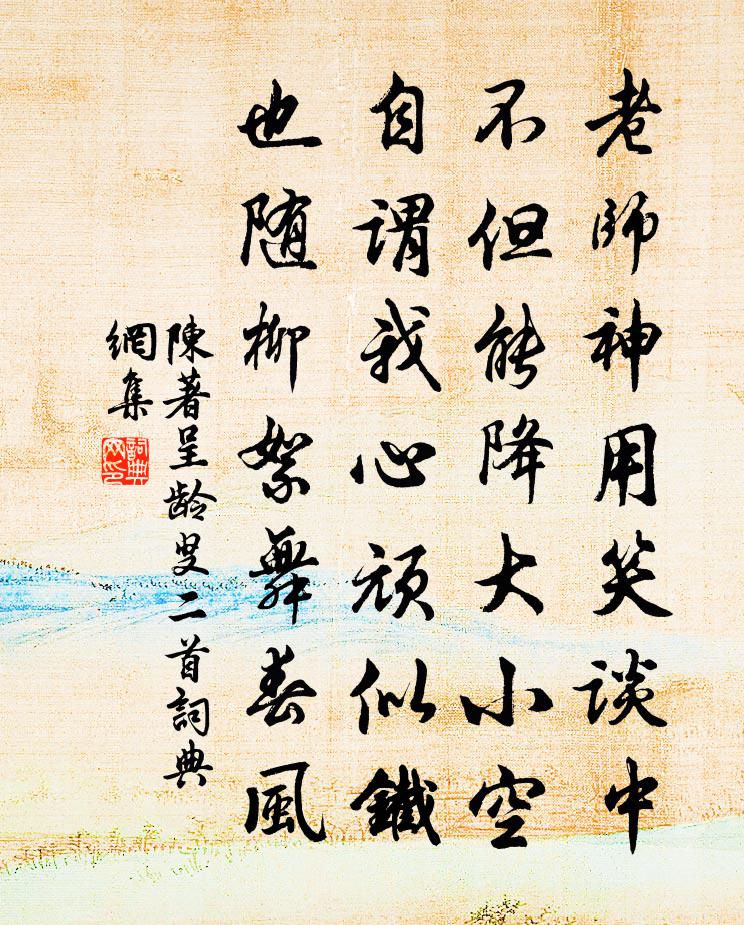 老師神用笑談中
不但能降大小空
自謂我心頑似鐵
也随柳絮舞春風
陳著呈龄叟二首詞典
網集
詞典
网印